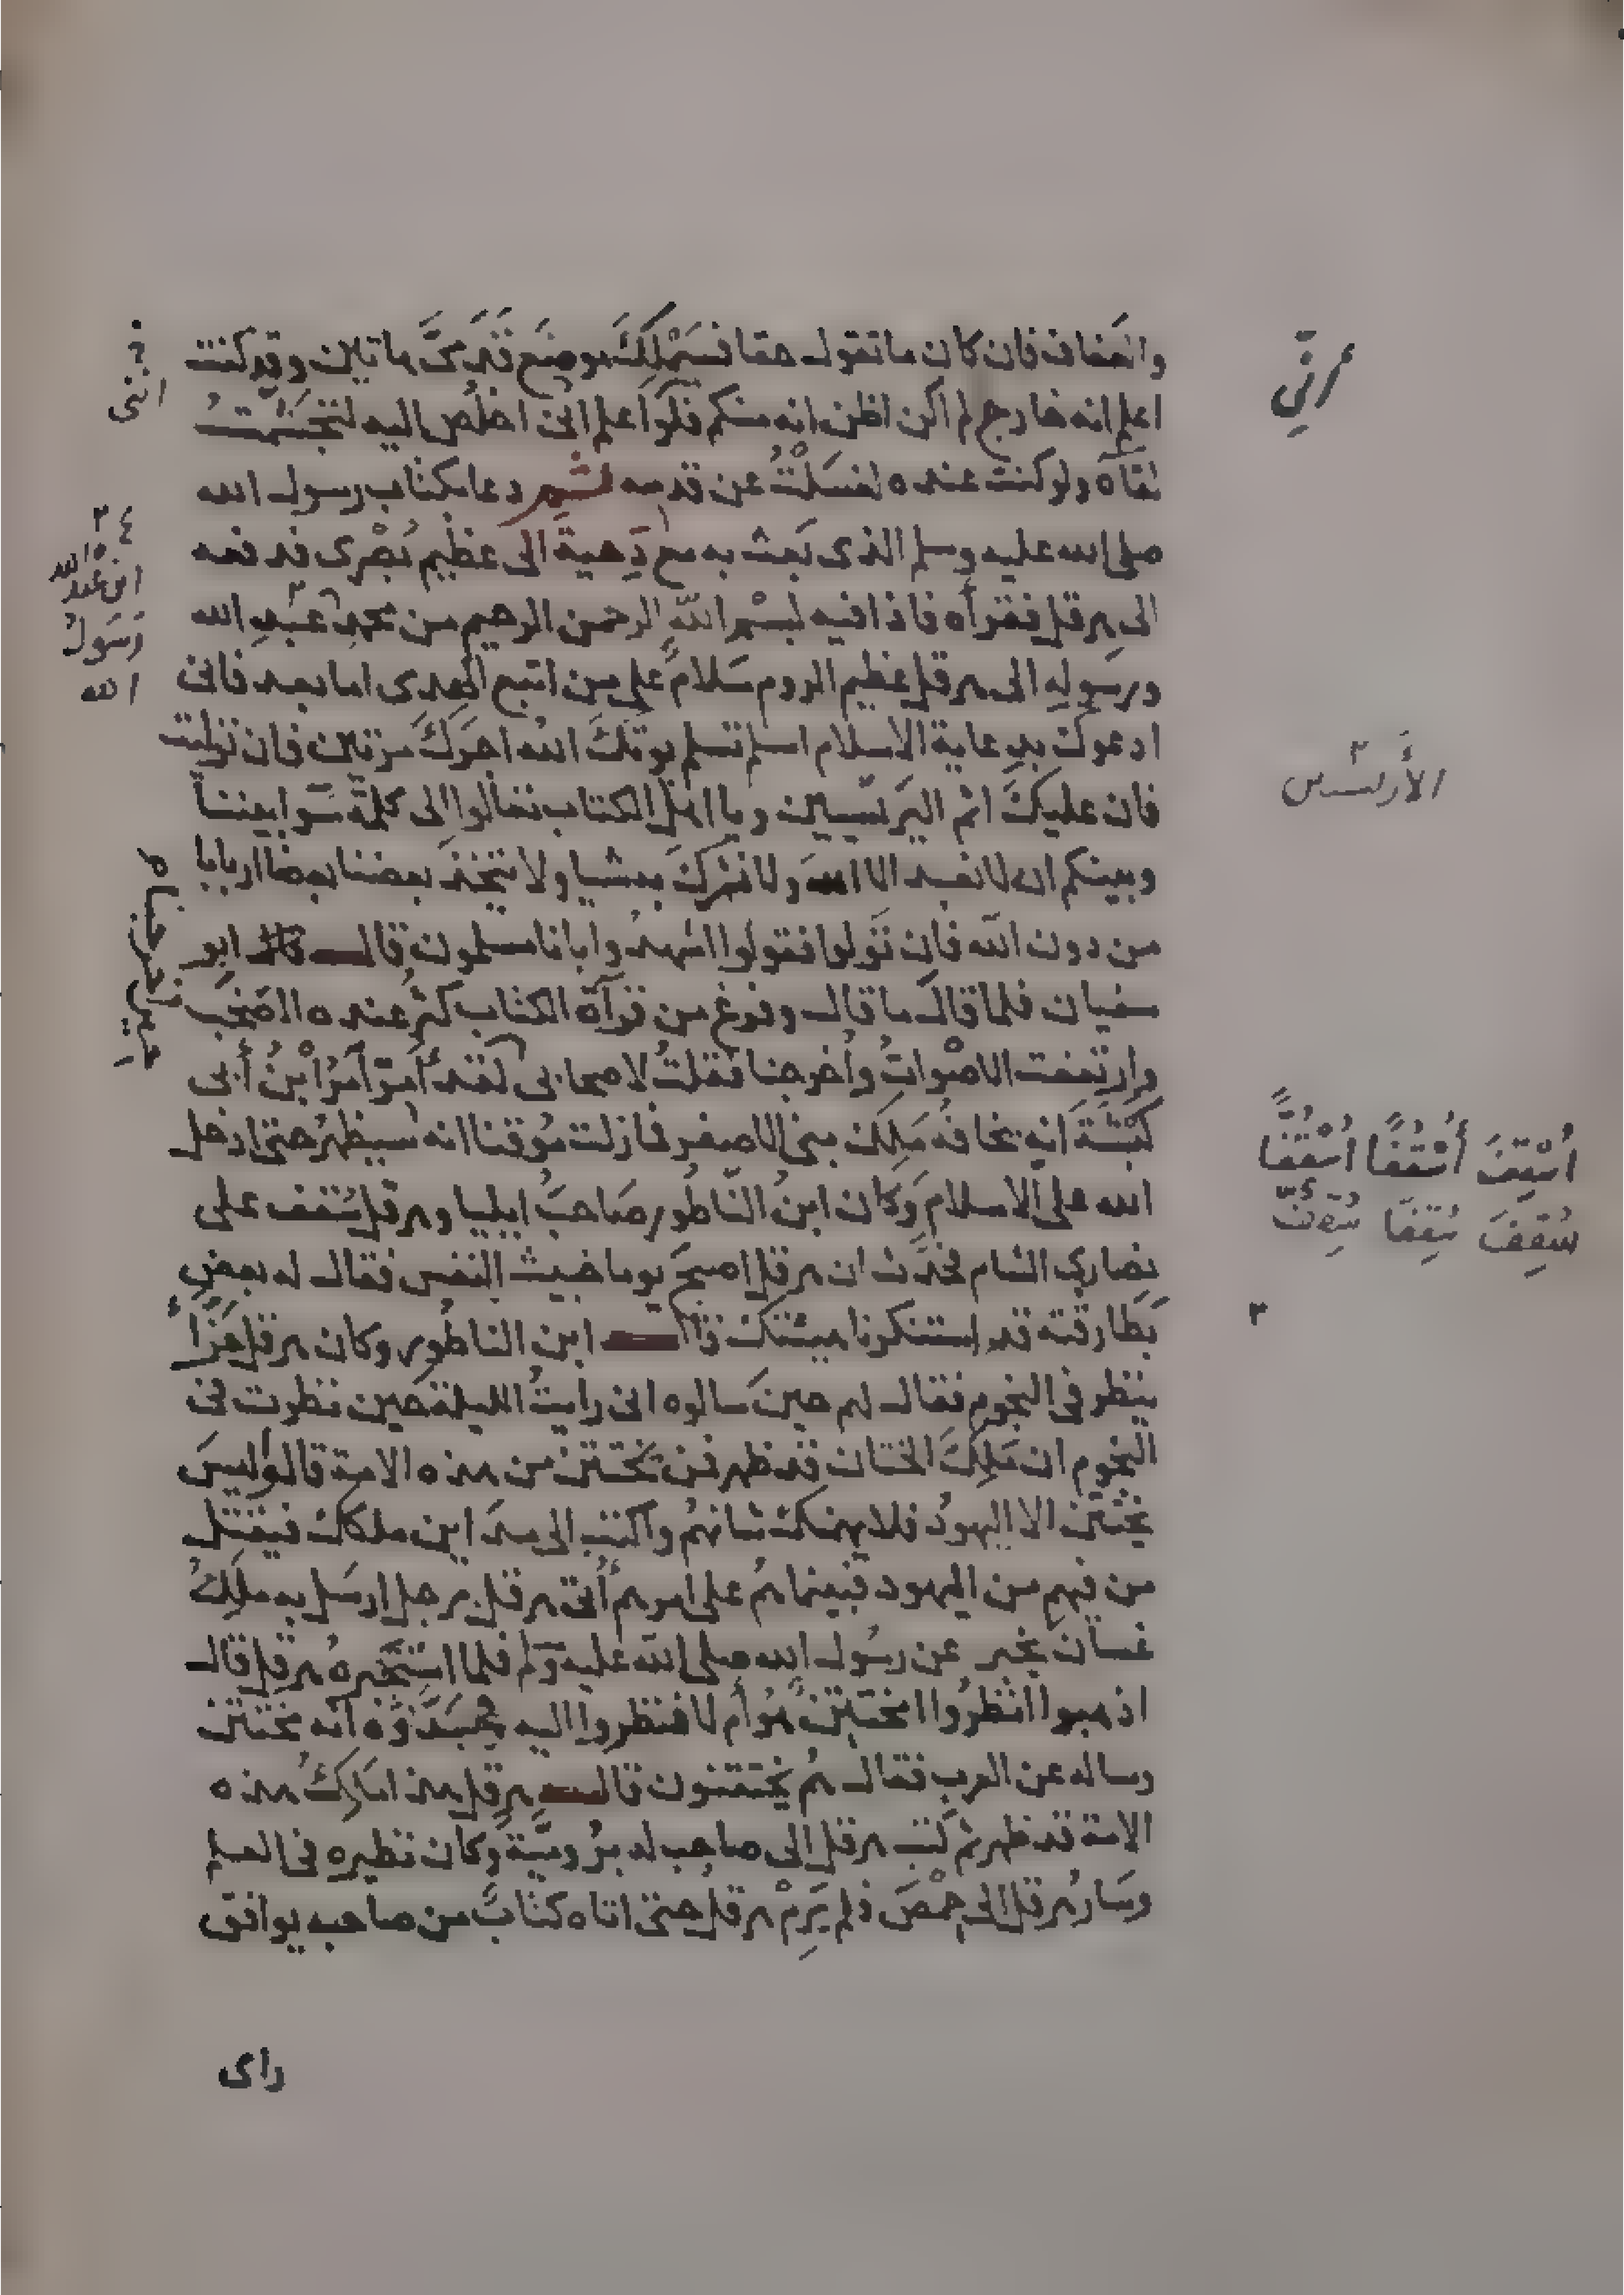 والعفاف فان كان ما تقول حقا فسيملك موضع قدمى هاتين وقد كنت
اعلم انه خارج لم اكن اظن انه منكم فلو اعلم انى اخلص اليه لتجشمت
لقآه ولو كنت عنده لغسلت عن قدميه ثم دعا بكتاب رسول الله
صلى الله عليه وسلم الذى بعث به مع دحية الى عظيم بصرى فدفعه
الى هرقل فقرأه فاذا فيه بسم الله الرحمن الرحيم من محمد عبد الله
ورسوله الى هرقل عظيم الروم سلام على من اتبع الهدى اما بعد فانى
ادعوك بدعاية الاسلام اسلم تسلم يوتك الله اجرك مرتين فان توليت
فان عليك اثم اليريسيين ويا اهل الكتاب تعالوا الى كلمة سوا بيننا
وبينكم ان لا نعبد الا الله ولا نشرك به شيا ولا يتخذ بعضنا بعضا اربابا
من دون الله فان تولوا فقولوا اشهدوا بانا مسلمون قال ابو
سفيان فلما قال ما قال وفرغ من قرآة الكتاب كثر عنده الصخب
وارتفعت الاصوات واخرجنا فقلت لاصحابى لقد أمر أمر ابن أبى
كبشة انه يخافه ملك بنى الاصفر فما زلت موقنا انه سيظهر حتى ادخل
الله على الاسلام وكان ابن الناطور صاحب ايليا وهرقل سقف على
نصارى الشام يحدث ان هرقل اصبح يوما خبيث النفس فقال له بعض
بطارقته قد استنكرنا هيئتك قال ابن الناطور وكان هرقل حزأ
ينظر فى النجوم فقال لهم حين سالوه انى رايت الليلة حين نظرت فى
النجوم ان ملك الختان قد ظهر فمن يختتن من هذه الامة قالوا ليس
يختتن الا اليهود فلا يهمنك شانهم واكتب الى مداين ملكك فيقتل
من فيهم من اليهود فبينما هم على امرهم أتى هرقل برجل ارسل به ملك
غسان يخبر عن رسول الله صلى الله عليه وسلم فلما استخبره هرقل قال
اذهبوا انظروا امختتن هو أم لا فنظروا اليه فحدثوه انه مختتن
وساله عن العرب فقال هم يختتنون قال هرقل هذا ملك هذه
الامة قد ظهر ثم كتب هرقل الى صاحب له برومية وكان نظيره فى العلم
وسار هرقل الى حمص فلم يرم هرقل حتى اتاه كتاب من صاحبه يوافق
راى
أنّي
اننى
ابن عبد الله
رسول
الله
الأريسيين
أسقف أسقفا أسقفا
سقف سقفا